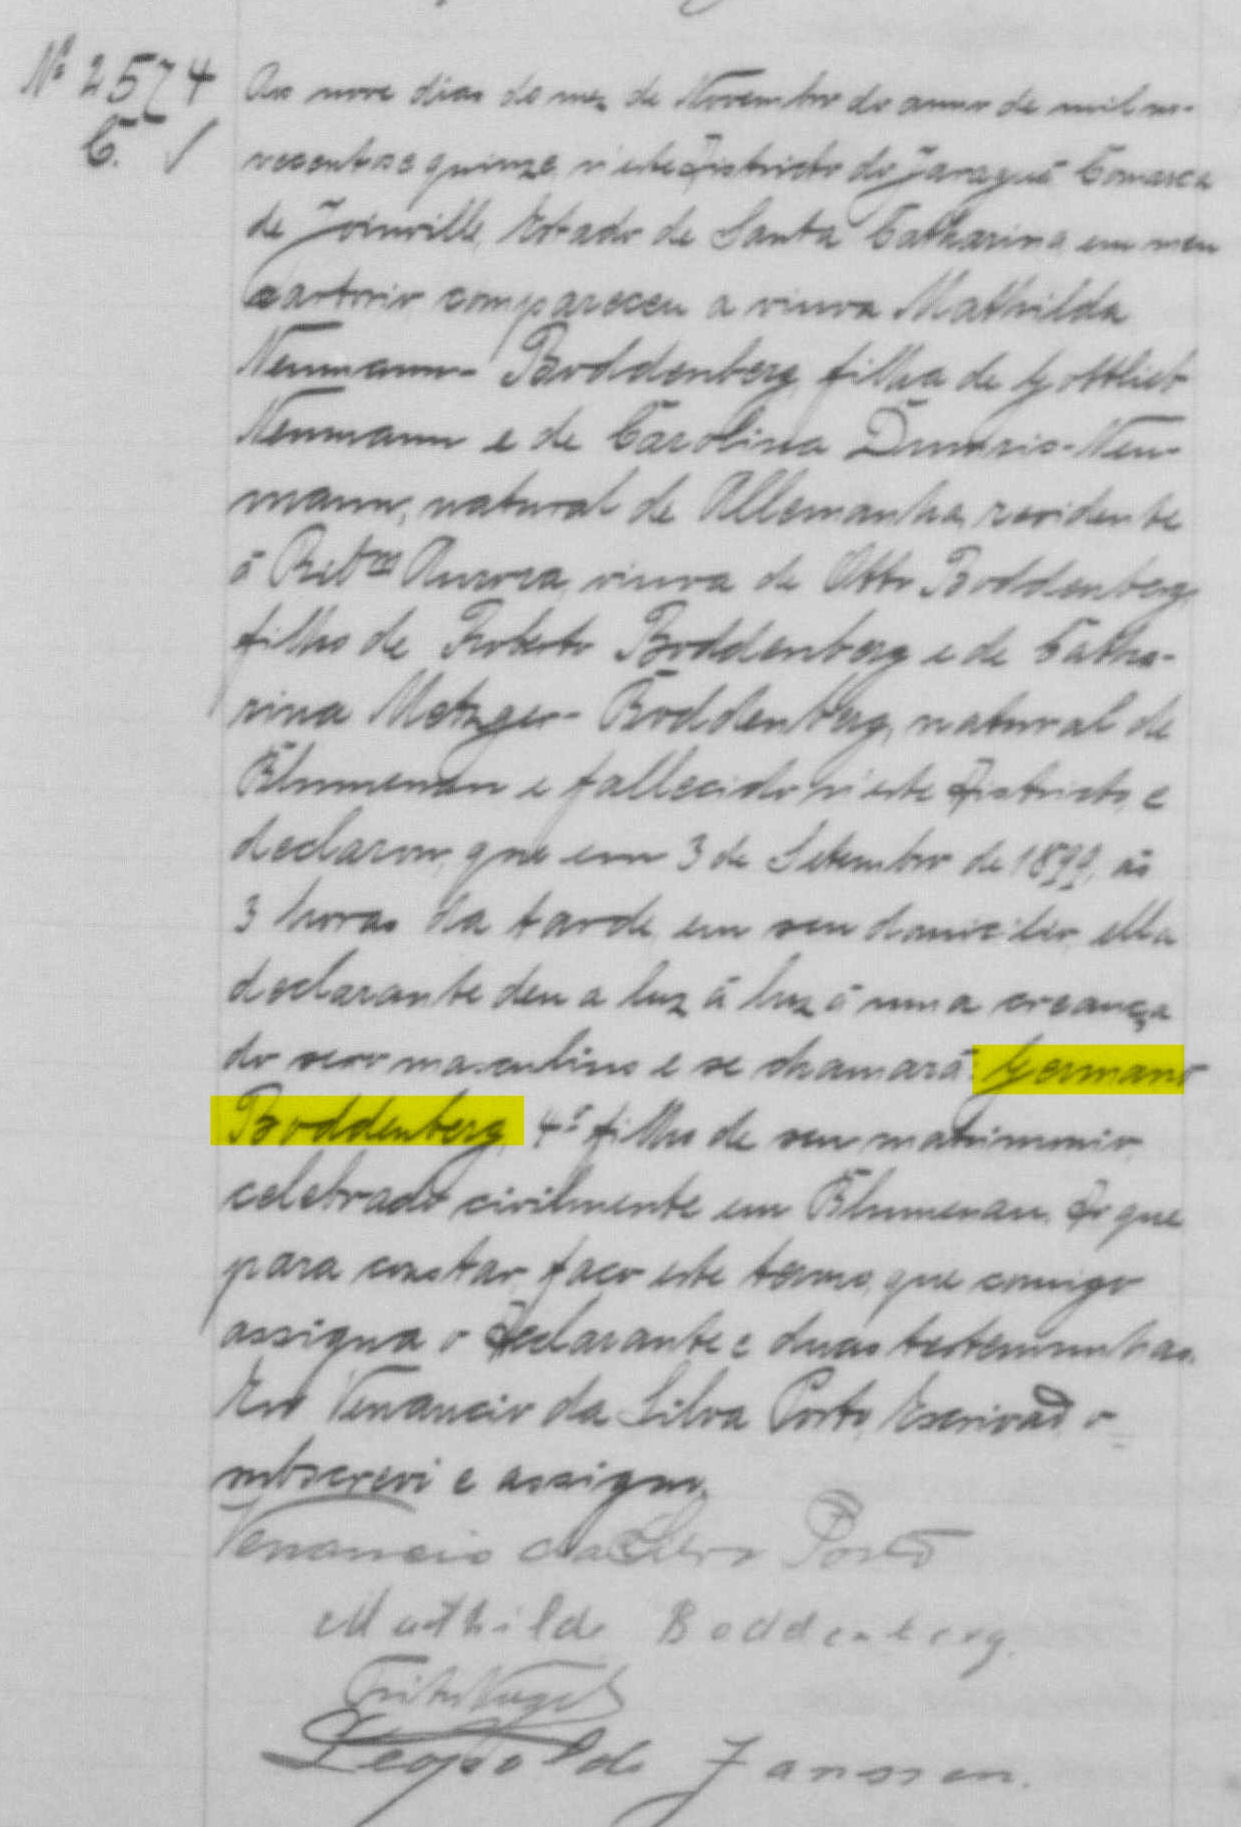 Nº 2574
Aos nove dias do mez de Novembro do anno de mil no-
vecentos e quinze, n'este Districto do Jaraguá Comarca
de Joinville, Estado de Santa Catharina, em meu
cartorio compareceu a viuva Mathilda
Neumann-Boddenberg, filha de Gottlieb
Neumann e de Carolina -Neu-
mann, natural de Allemanha, residente
á Ribᵃᵒ Aurora, viuva de Otto Boddenberg,
filho de Roberto Boddenberg e de Catha-
rina Metzger-Boddenberg, natural de
Blumenau e fallecido n'este Districto, e
declarou que em 3 de Setembro de 1899, ás
3 horas da tarde, em seu domicilio, ella
declarante deu a luz á luz á uma creança
do sexo masculino e se chamará: Germano
Boddenberg, 4º filho de seu matrimonio,
celebrado civilmente em Blumenau. Do que
para constar, faço este termo, que comigo
assigna o Declarante e duas testemunhas.
Eu Venancio da Silva Porto, Escrivaõ o
subscrevi e assigno.
Venancio da Silva Porto
Mathilde Boddenberg.
Fritz Vogel
Leopoldo Janssen.